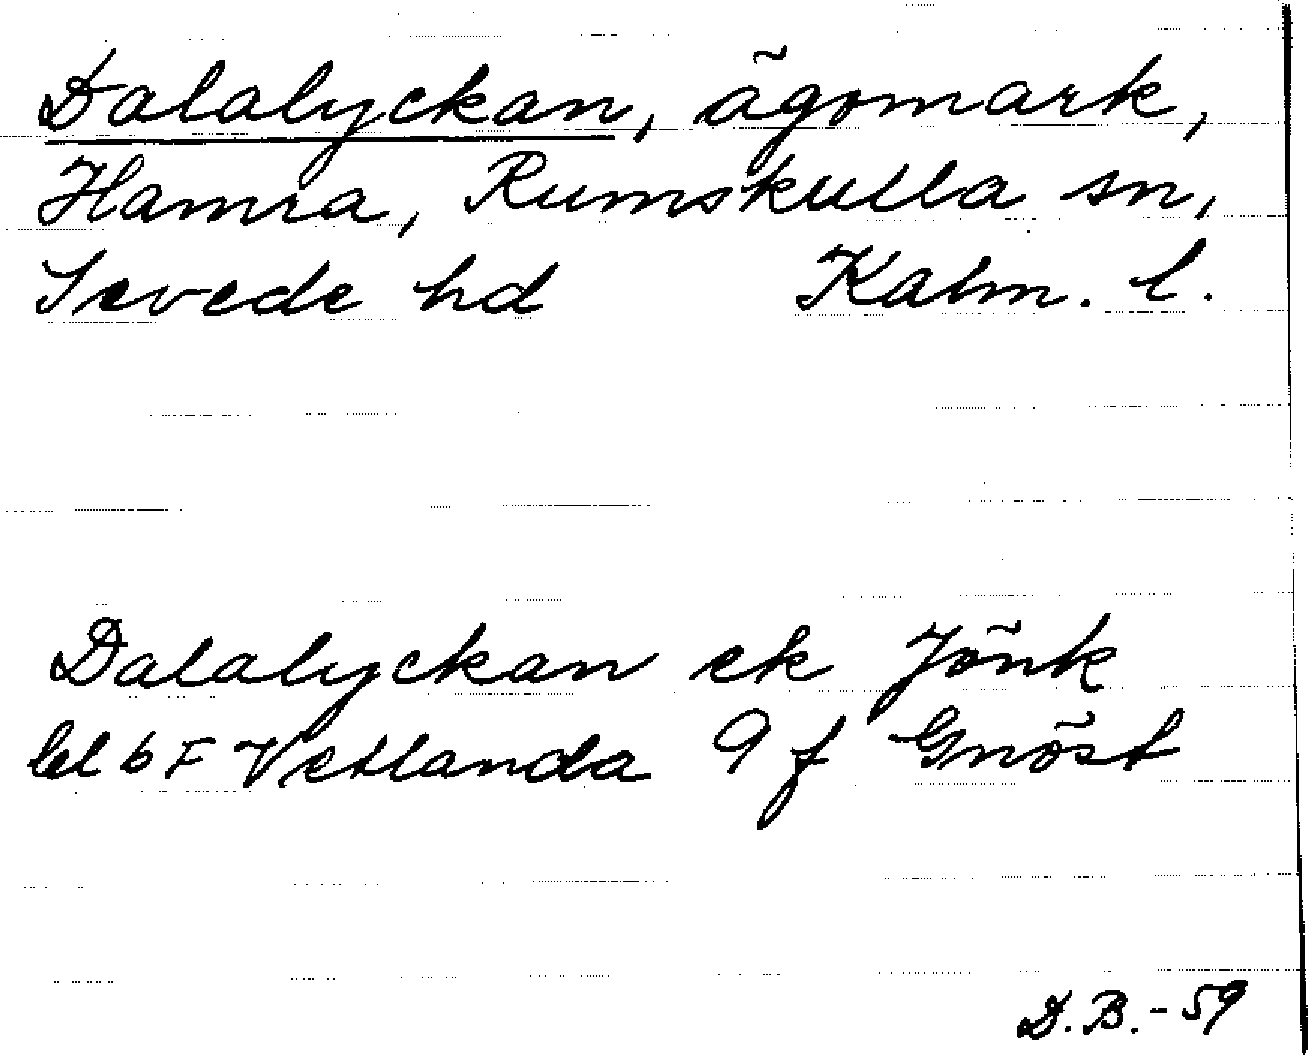 Dalalyckan, ägomark,
Hamra, Rumskulla sn,
Sevede hd Kalm. l.
Dalalyckan ek Jönk
bl 6 F Vetlanda 9 f Gnöst
D.B.-59